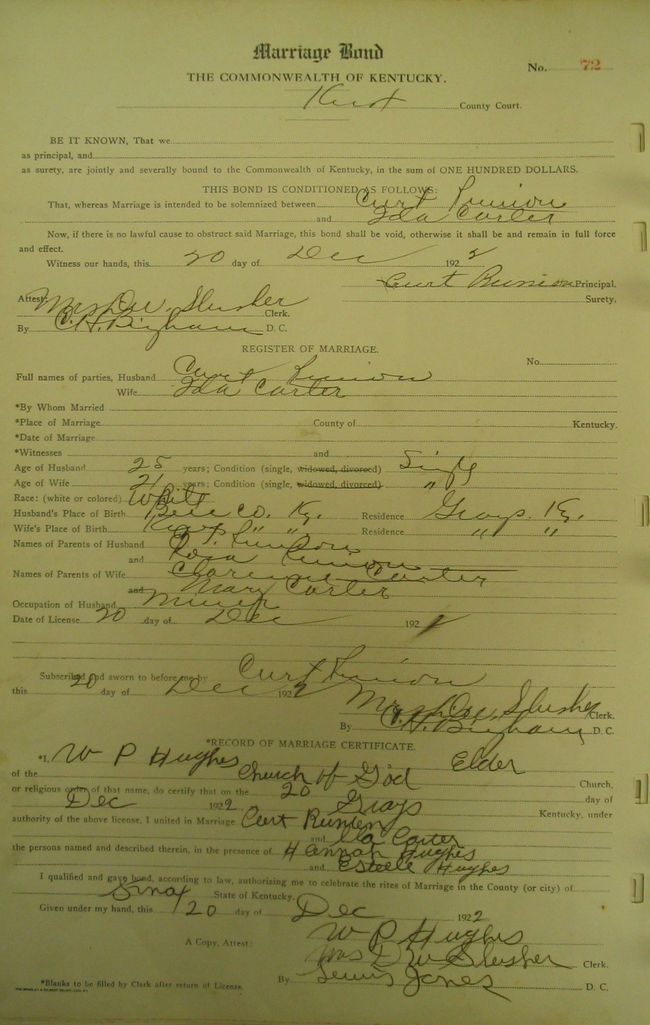 Marriage Bond
No. 72
THE COMMONWEALTH OF KENTUCKY.
County Court.
BE IT KNOWN, That we
as principal, and
as surety, are jointly and severally bound to the Commonwealth of Kentucky, in the sum of ONE HUNDRED DOLLARS.
THIS BOND IS CONDITIONED AS FOLLOWS:
That, whereas Marriage is intended to be solemnized between Curt Runion
and Ida Carter
Now, if there is no lawful cause to obstruct said Marriage, this bond shall be void, otherwise it shall be and remain in full force
and effect.
Witness our hands, this 20 day of Dec 1922
Curt Runion Principal.
Surety.
Attest: Mrs. D.W. Slusher Clerk.
By C. H. Bigham D. C.
REGISTER OF MARRIAGE.
No.
Full names of parties, Husband Curt Runion
Wife Ida Carter
*By Whom Married
*Place of Marriage County of Kentucky.
*Date of Marriage
*Witnesses and
Age of Husband 25 years; Condition (single, widowed, divorced) Single
Age of Wife 21 years; Condition (single, widowed, divorced) "
Race: (white or colored) White
Husband's Place of Birth Bell Co. Ky. Residence Grays. Ky.
Wife's Place of Birth " " Residence " "
Names of Parents of Husband Runion
and Rosa Runion
Names of Parents of Wife Clarence Carter
and Mary Carter
Occupation of Husband Miner
Date of License 20 day of Dec 1922
Subscribed and sworn to before me by Curt Runion
this 20 day of Dec 1922
Mrs. D.W. Slusher Clerk.
By C. H. Bigham D. C.
*RECORD OF MARRIAGE CERTIFICATE.
*I, W P Hughes Elder
of the Church of God Church,
or religious order of that name, do certify that on the 20 day of
Dec 1922 Grays Kentucky, under
authority of the above license, I united in Marriage Curt Runion
and Ida Carter
the persons named and described therein, in the presence of Hannah Hughes
and Estelle Hughes
I qualified and gave bond, according to law, authorizing me to celebrate the rites of Marriage in the County (or city) of
State of Kentucky.
Given under my hand, this 20 day of Dec 1922
W P Hughes
A Copy, Attest: Mrs D W Slusher Clerk.
By Lewis Jones D. C.
*Blanks to be filled by Clerk after return of License.